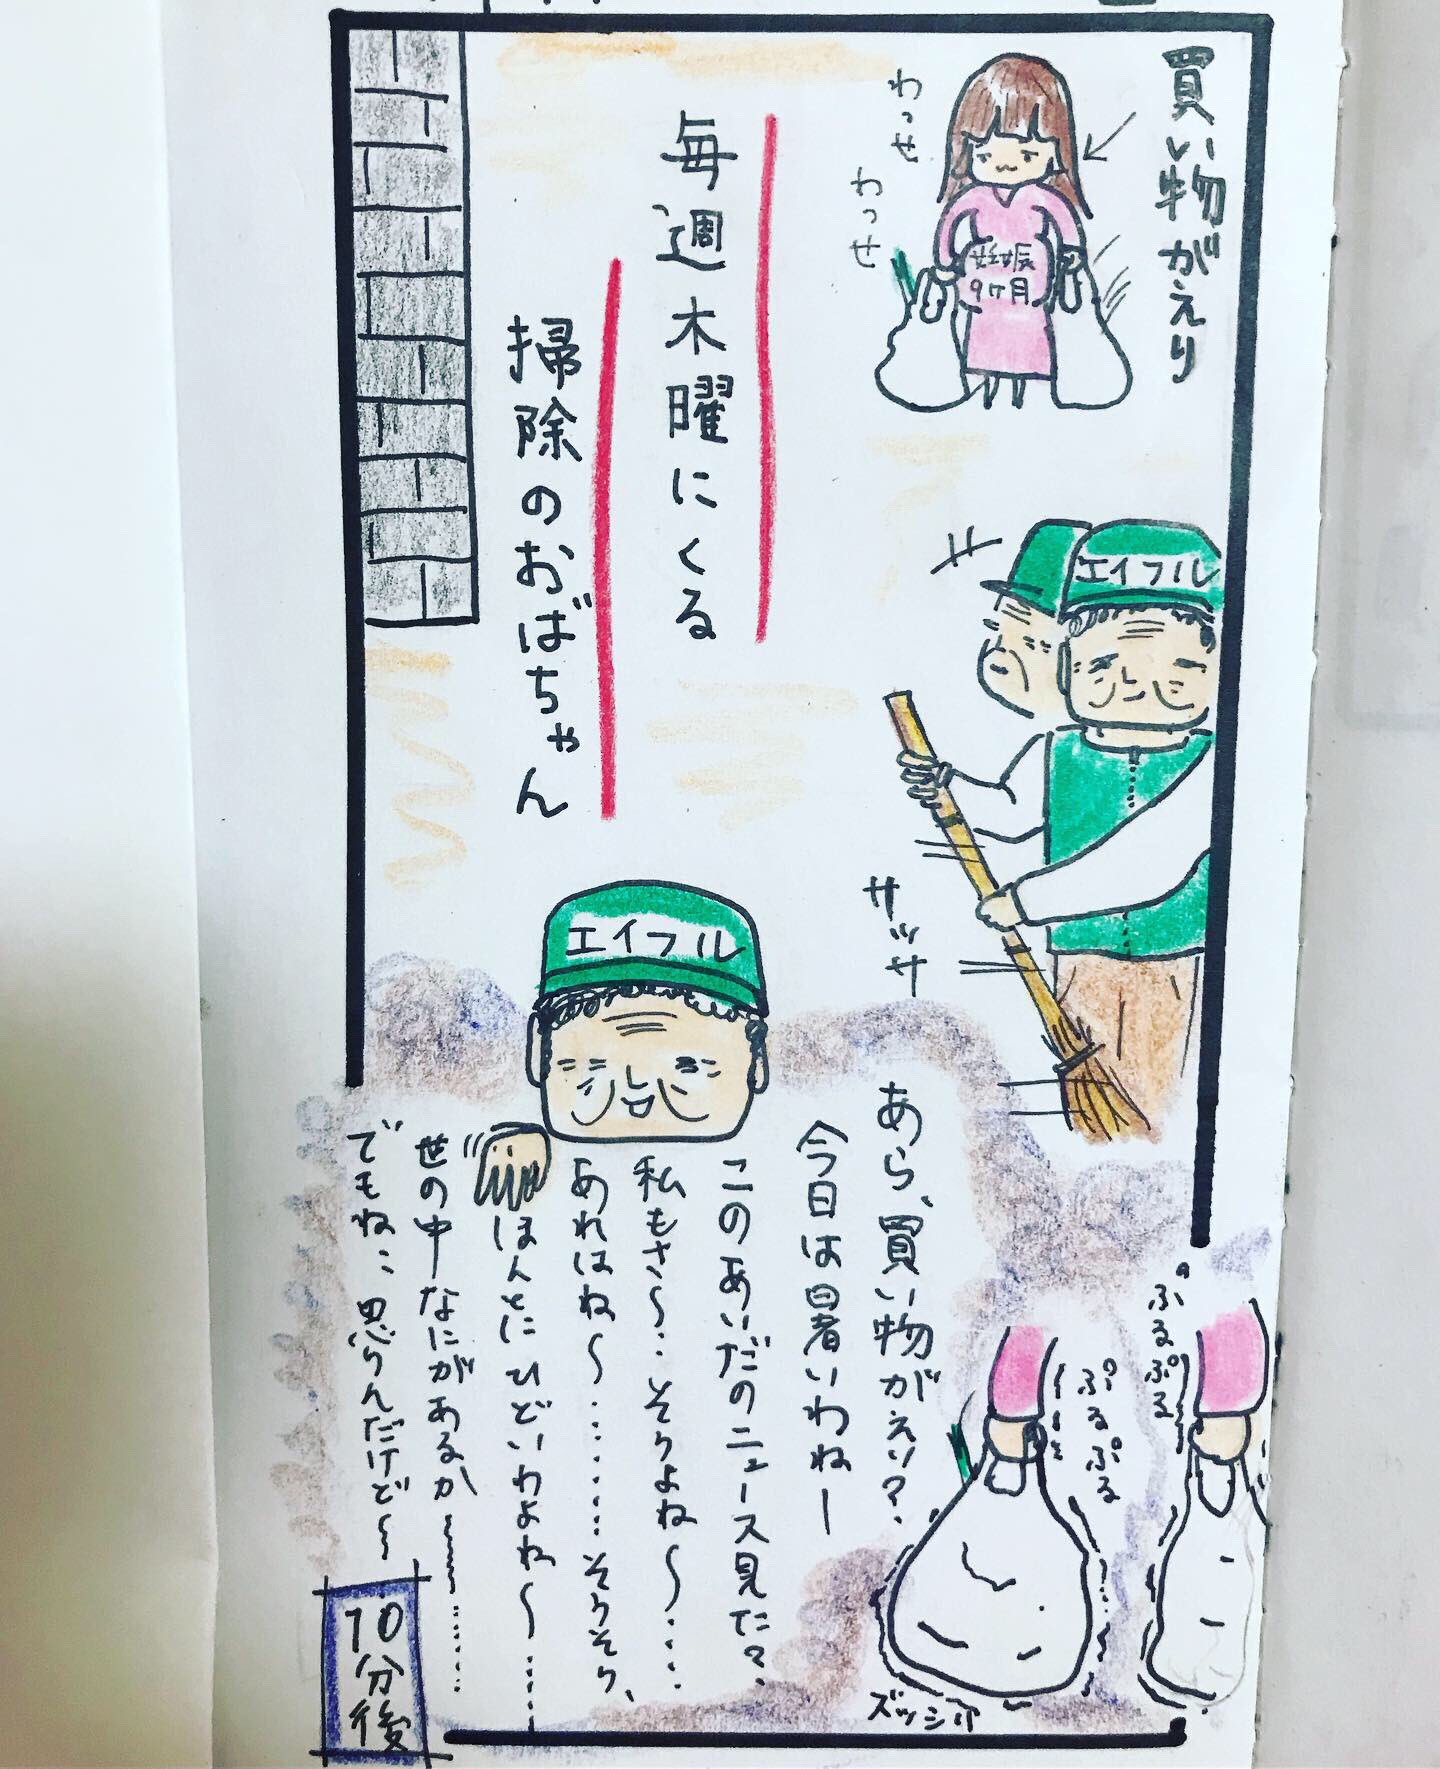 買い物がえり
わっせ
わっせ
妊娠
9ヶ月
毎週木曜にくる
掃除のおばちゃん
エイフル
サッサ
エイフル
あら、買い物がえり?
今日は暑いわねー
このあいだのニュース見た?
私もさ〜‥そうよね〜‥‥
あれはね〜‥‥‥‥そうそう、
ほんとにひどいわよね〜‥‥
世の中なにがあるか〜‥‥‥
でもね‥思うんだけど〜
ぷるぷる
ぷるぷる
ズッシリ
10分後